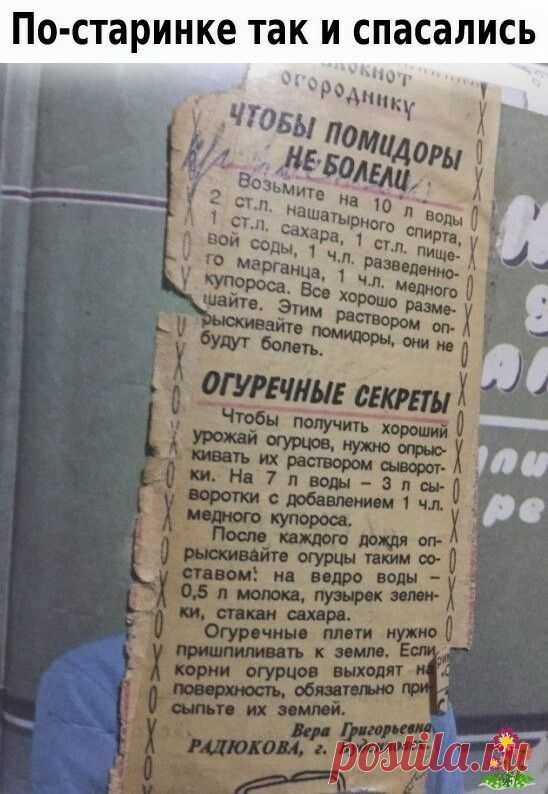 По-старинке так и спасались
огороднику
ЧТОБЫ ПОМИДОРЫ
НЕ БОЛЕЛИ
Возьмите на 10 л воды
2 ст.л. нашатырного спирта,
1 ст.л. сахара, 1 ст.л. пище-
вой соды, 1 ч.л. разведенно-
го марганца, 1 ч.л. медного
купороса. Все хорошо разме-
шайте. Этим раствором оп-
рыскивайте помидоры, они не
будут болеть.
ОГУРЕЧНЫЕ СЕКРЕТЫ
Чтобы получить хороший
урожай огурцов, нужно опрыс-
кивать их раствором сыворот-
ки. На 7 л воды – 3 л сы-
воротки с добавлением 1 ч.л.
медного купороса.
После каждого дождя оп-
рыскивайте огурцы таким со-
ставом: на ведро воды –
0,5 л молока, пузырек зелен-
ки, стакан сахара.
Огуречные плети нужно
пришпиливать к земле. Если
корни огурцов выходят на
поверхность, обязательно при-
сыпьте их землей.
Вера Григорьевна
РАДЮКОВА, г.
postila.ru